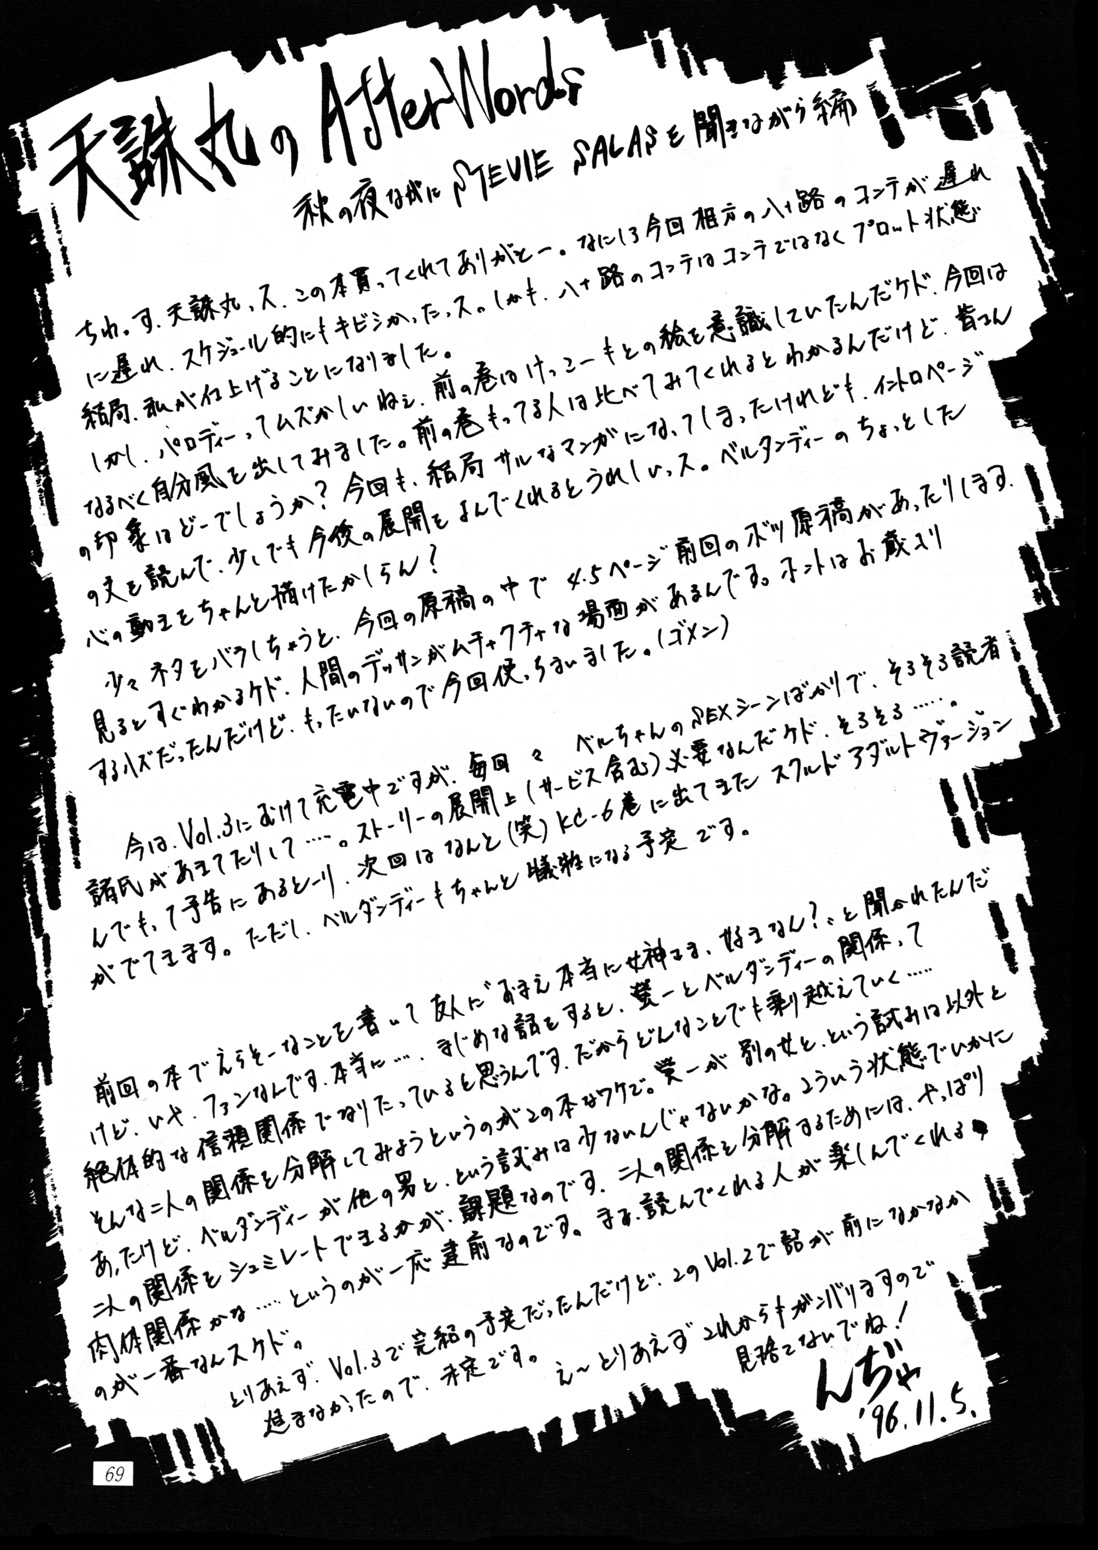 天誅丸の AfterWords
秋の夜ながに STEVIE SALASを聞きながら編
ちわっす、天誅丸っス、この本買ってくれてありがとー。なにしろ今回相方の八十路のコンテが遅れ
に遅れ、スケジュール的にもキビシかったっス。しかも、八十路のコンテはコンテではなくプロット状態
結局、私が仕上げることになりました。
しかし、パロディーってムズかしいねェ、前の巻はけっこーもとの絵を意識していたんだケド、今回は
なるべく自分風を出してみました。前の巻もってる人は比べてみてくれるとわかるんだけど、皆さん
の印象はどーでしょうか？今回も、結局サルなマンガになってしまったけれども、イントロページ
の文を読んで、少しでも今後の展開をよんでくれるとうれしいっス。ベルダンディーのちょっとした
心の動きをちゃんと描けたかしらん？
少々ネタをバラしちゃうと、今回の原稿の中で 4.5ページ前回のボツ原稿があったりします.
見るとすぐわかるケド、人間のデッサンがムチャクチャな場面があるんです。ホントはお蔵入り
するハズだったんだけど、もったいないので今回使っちまいました。(ゴメン)
今は、Vol.3にむけて充電中ですが、毎回々 ベルちゃんのSEXシーンばかりで、そろそろ読者
諸氏があきてたりして……。ストーリーの展開上(サービス含む)必要なんだケド、そろそろ……。
んでもって予告にあるとーり、次回はなんと(笑)KC-6巻に出てきた スクルド アダルトヴァージョン
がでてきます。ただし、ベルダンディーもちゃんと犠牲になる予定です。
前回の本でえらそーなことを書いて友人に"おまえ本当に女神さま、好きなん？"と聞かれたんだ
けど、いや、ファンなんです、本当に…、まじめな話をすると、螢一とベルダンディーの関係って
絶体的な信頼関係でなりたっていると思うんです、だからどんなことでも乗り越えていく……
そんな二人の関係を分解してみようというのがこの本なワケで。螢一が 別の女と、という試みは以外と
あったけど、ベルダンディーが他の男と、という試みは少ないんじゃないかな。こういう状態でいかに
二人の関係をシュミレートできるかが、課題なのです、二人の関係を分解するためには、やっぱり
肉体関係かな……というのが一応建前なのです。まあ、読んでくれる人が楽しんでくれる
のが一番なんスケド。
とりあえず、Vol.3で完結の予定だったんだけど、このVol.2で話が前になかなか
進まなかったので、未定です。
え〜とりあえずこれからもガンバりますので
見捨てないでね！
んぢゃ
'96.11.5.
69